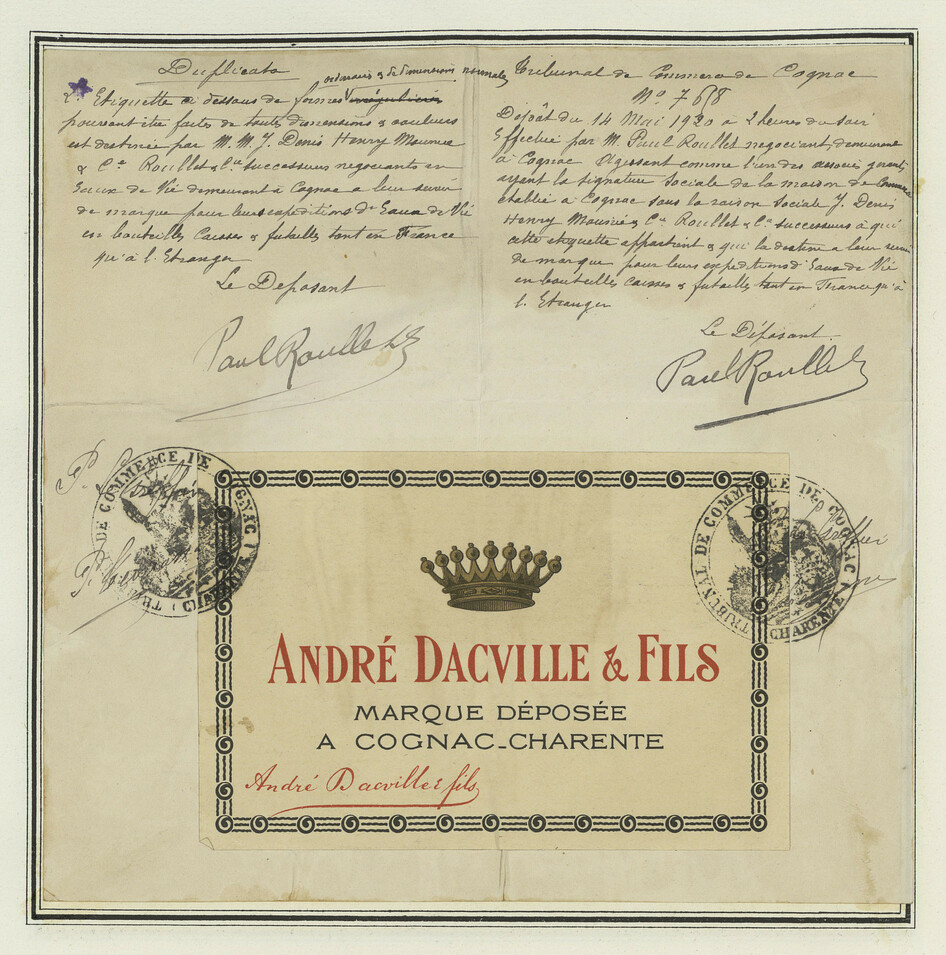 Duplicata
ordinaires & de dimensions normales
L' Etiquette ci dessous de formes irrégulières
pouvant être faites de toutes dimensions & couleurs
est destinée par M.M. J. Denis Henry Mounié
& Cie Roullet & Cie successeurs negociants en
Eaux de Vie demeurant à Cognac a leur servir
de marque pour leurs expeditions d'Eaux de Vie
en bouteilles Caisses & futailles tant en France
qu'à l. Etranger
Le Deposant
Paul Roullet
Tribunal de Commerce de Cognac
No 768
Dépôt du 14 Mai 1920 a 2 heures du soir
Effectué par M. Paul Roullet negociant demeurant
à Cognac Agissant comme l'un des associés gerants
ayant la signature Sociale de la maison de Commerce
établie à Cognac sous la raison Sociale J. Denis
Henry Mounié & Cie Roullet & Cie successeurs à qui
cette etiquette appartient & qui la destine a leur servir
de marque pour leurs expeditions d'Eaux de Vie
en bouteilles caisses & futailles tant en France qu'à
l. Etranger
Le Déposant.
Paul Roullet
TRIBUNAL DE COMMERCE DE COGNAC
CHARENTE
TRIBUNAL DE COMMERCE DE COGNAC
CHARENTE
ANDRÉ DACVILLE & FILS
MARQUE DÉPOSÉE
A COGNAC-CHARENTE
André Dacville & fils